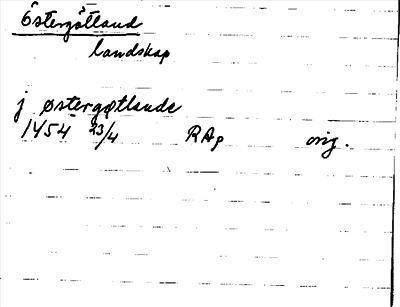 Östergötland
landskap
j østergøtlande
1454 23/4 RAp orig.